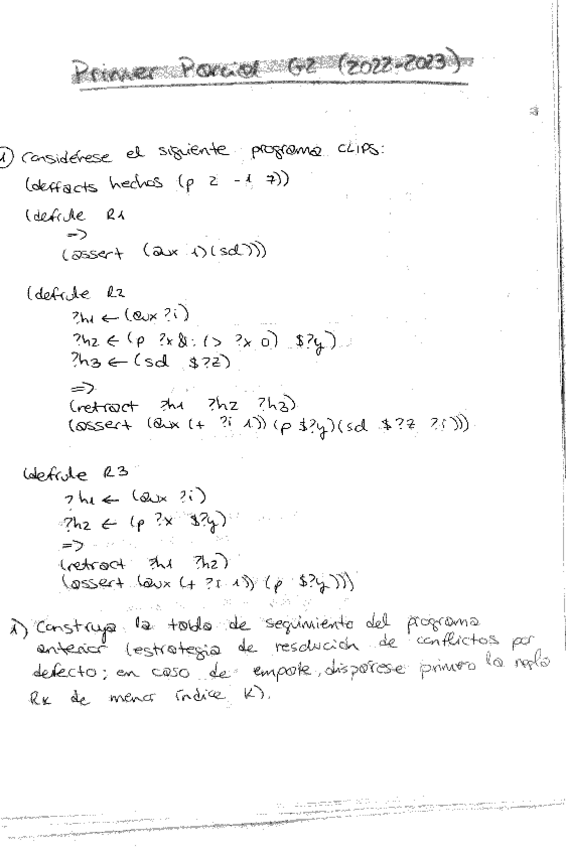 Primer Parcial G2 (2022-2023)
1) Considérese el siguiente programa CLIPS:
(deffacts hechos (p 2 -1 7))
(defrule R1
=>
(assert (aux 1)(sol)))
(defrule R2
?h1 ← (aux ?i)
?h2 ← (p ?x &: (> ?x 0) $?y)
?h3 ← (sol $?z)
=>
(retract ?h1 ?h2 ?h3)
(assert (aux (+ ?i 1)) (p $?y)(sol $?z ?i)))
(defrule R3
?h1 ← (aux ?i)
?h2 ← (p ?x $?y)
=>
(retract ?h1 ?h2)
(assert (aux (+ ?i 1)) (p $?y)))
i) Construya la tabla de seguimiento del programa
anterior (estrategia de resolución de conflictos por
defecto; en caso de empate, dispárese primero la regla
Rk de menor índice k).